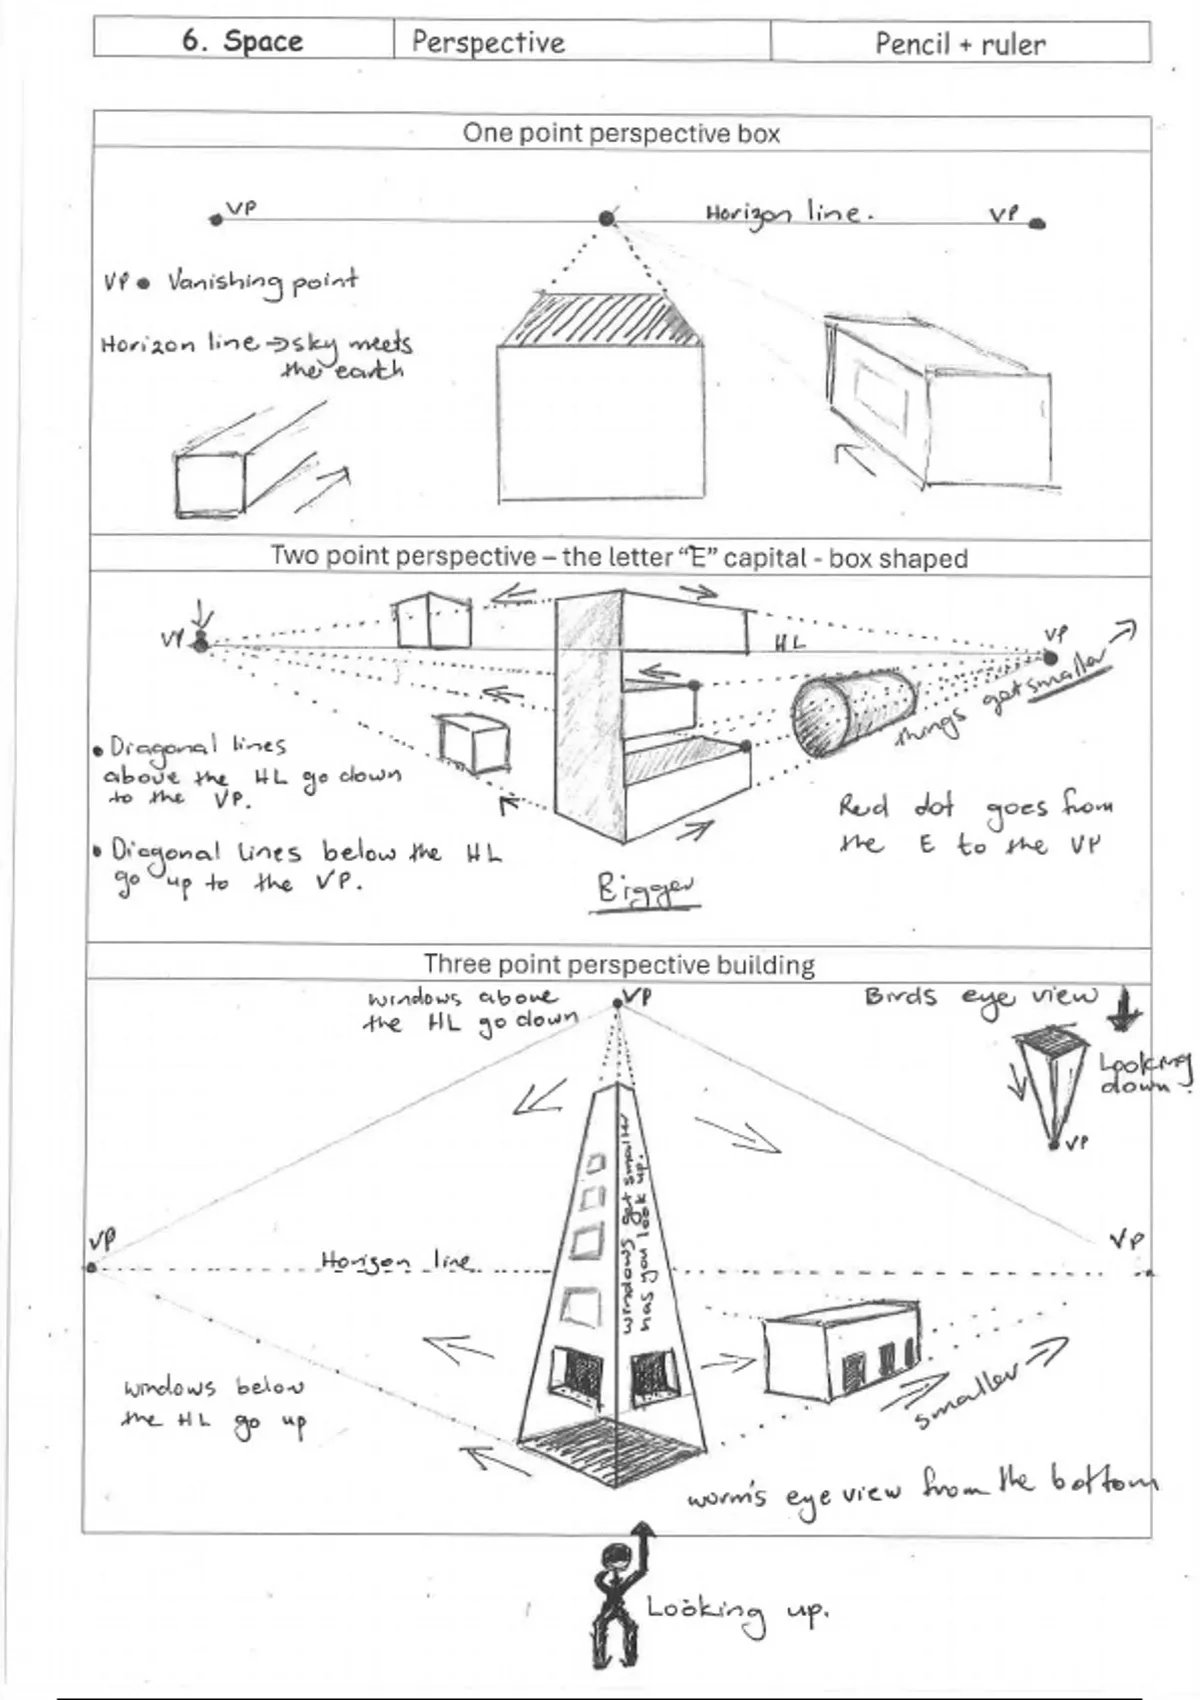 6. Space
Perspective
Pencil + ruler
One point perspective box
VP
Horizon line.
VP
VP • Vanishing point
Horizon line → sky meets
the earth
Two point perspective – the letter “E” capital - box shaped
VP
HL
VP
things get smaller
• Diagonal lines
above the HL go down
to the VP.
• Diagonal lines below the HL
go up to the VP.
Red dot goes from
the E to the VP
Bigger
Three point perspective building
windows above
the HL go down
VP
Birds eye view
Looking
down.
VP
windows get smaller
has you look up.
VP
Horizon line
VP
windows below
the HL go up
smaller
worm's eye view from the bottom
Looking up.